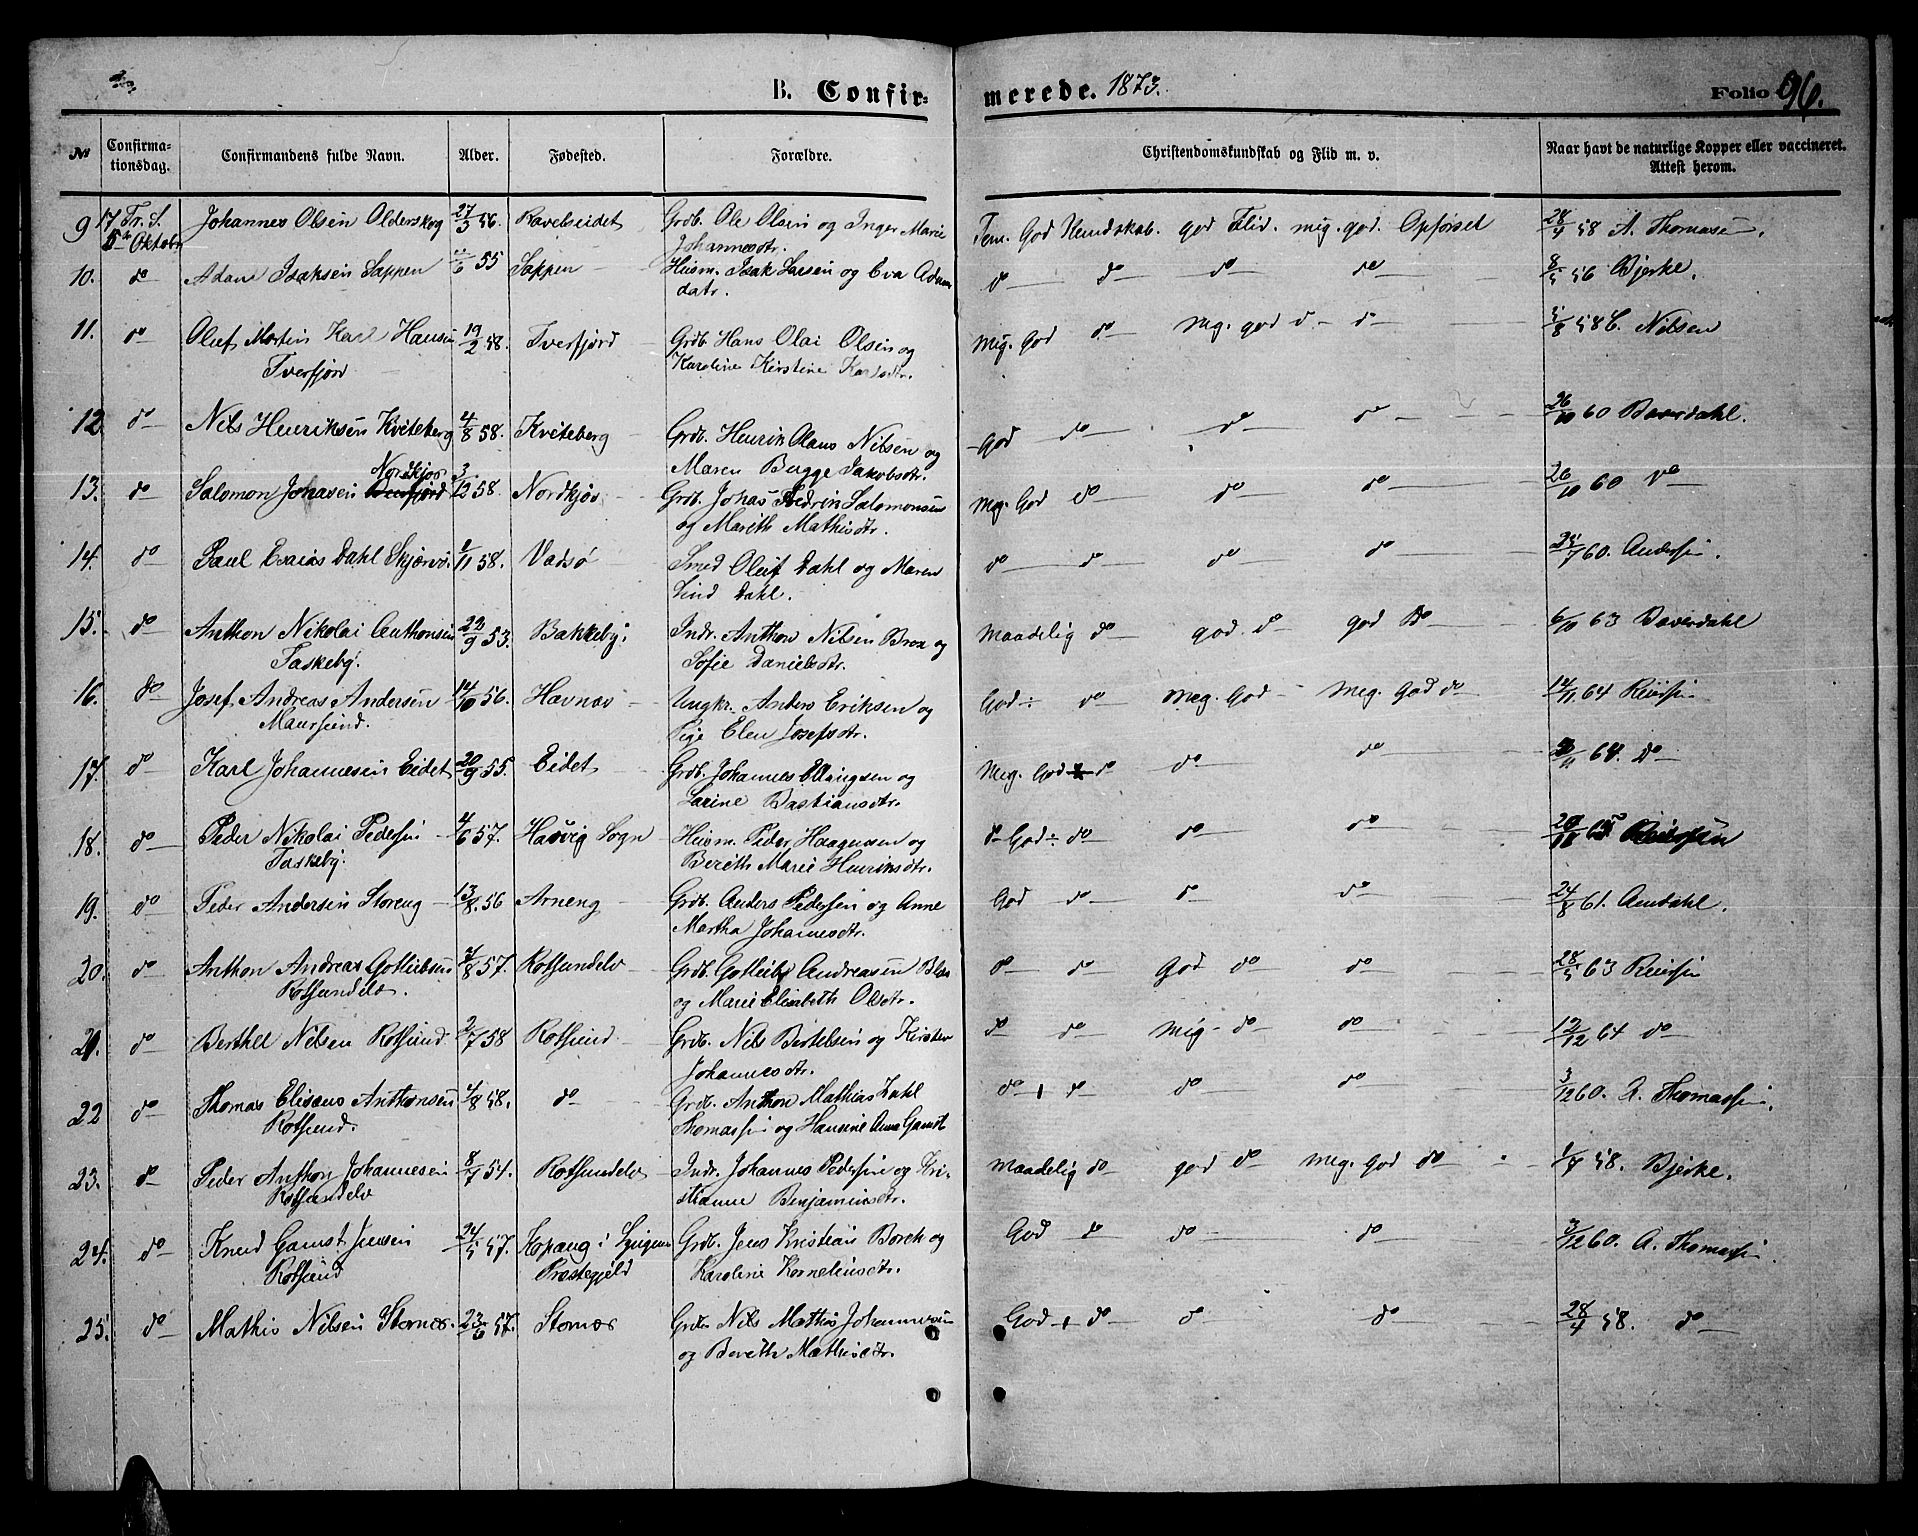 B. Confir-
merede. 1873.
Folio 96.
№
Confirma-
tionsdag.
Confirmandens fulde Navn.
Alder.
Fødested.
Forældre.
Christendomskundskab og Flid m. v.
Naar havt de naturlige Kopper eller vaccineret.
Attest herom.
9 17 Tr. S. Johannes Olsen Olderskog 27/3 56. Ravelseidet Grdb. Ole Olsen og Inger Marie God Kundskab. god Flid. mig. god. Opførsel 28/4 58 A. Thomasen.
5te Oktober Johannesdtr.
10. do Adam Isaksen Sappen 55 Sappen Husm. Isak Larsen og Eva Adam do do do do 56 Bjerke.
datr.
11. do Oluf Martin Karl Hansen 19/2 58. Tverfjord Grdb. Hans Olai Olsen og Mig. God do Mg. god do do 58 Nilsen
Tverfjord Karoline Kirstine Karlsdtr.
12 do Nils Henriksen Kviteberg 4/8 58. Kviteberg Grdb. Henrik Olaus Nilsen og God do do do 26/10 60 Baverdahl.
Maren Bugge Jakobsdtr.
Nordkjos
13. do Salomon Johasen 3/12 58. Nordkjos Grdb. Johas Fredrik Salomonsen Mg. God do do do 26/10 60 do
og Mareth Mathisdtr.
14. do Paul Esaias Dahl Skjervø. 1/11 58. Vadsø Smed Oluf Dahl og Maren do do do do /7 60. Andersen.
Lind Dahl.
15. do Anthon Nikolai Anthonsen 22/9 53. Bakkeby. Indr. Anthon Nilsen Brox og Maadelig do god. do god do 6/10 63 Baverdahl
Taskeby. Sofie Danielsdtr.
16. do Josef Andreas Andersen 14/10 56. Havnnes Ungkr. Anders Eriksen og God do Meg. God Meg. God do 14/11 64 Reiersen
Maursund. Pige Elen Josefsdtr.
17. do Karl Johannesen Eidet 20/9 55. Eidet Grdb. Johannes Ellingsen og Meg. God do do do 64. do
Larine Bastiansdtr.
18. do Peder Nikolai Pedersen 4/6 57. Hasvig Sogn Husm. Peder Haagensen og God do do do Reiersen
Taskeby. Bereth Marie Henriksdtr.
19. do Peder Andersen Storeng 13/8 56 Arneng Grdb. Anders Pedersen og Anne God do do do 24/8 61. Amdahl.
Martha Johannesdtr.
20. do Anthon Andreas Gotliebsen /8 57. Rotsundelv Grdb. Gotlieb Andreasen do do God do do 28/5 63 Reiersen
Rotsundelv. og Marie Elisabeth Olsdtr.
21. do Berthel Nilsen Rotsund. 2/7 58 Rotsund Grdb. Nils Bertelsen og Kirsten do do mig do do 12/12 64 do
Johannesdtr.
22 do Thomas Elisæus Anthonsen 4/8 58. do Grdb. Anthon Mathias Dahl do do do do 3/12 60. A. Thomassen.
Rotsund. Thomassen og Hansine Anna Gamst
23. do Peder Anthon Johannesen 8/7 54. Rotsundelv Indr. Johannes Pedersen og Kri- Maadelig do god do meg. God do 1/7 58. Bjerke.
Rotsundelv stianne Benjaminsdtr.
24. do Knud Gamst Jensen 24/5 57. i Lyngens Grdb. Jens Kristian Borch og God do do do 3/12 60. A. Thomassen
Rotsund Præstegjeld Karoline Korneliusdtr.
25. do Mathis Nilsen Stornæs. 23/6 57. Stornæs Grdbr. Nils Mathis Johannesen God do do do 28/4 58. do
og Bereth Mathisdtr.